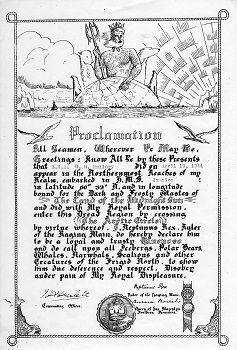 Proclamation
All Seamen, Wherever Ye May Be,
Greetings: Know All by these Presents
that did on April 15, 1974
appear in the Northernmost Reaches of my
Realm, embarked in H.M.S.
in latitude N, and in longitude
bound for the Dark and Frosty Wastes of
The Land of the Midnight Sun
and did with My Royal Permission,
enter this Dread Region by crossing
The Arctic Circle
by virtue whereof, I, Neptunus Rex, Ruler
of the Raging Main, do hereby declare him
to be a loyal and trusty
and do call upon all Icebergs, Polar Bears,
Whales, Narwhals, Sealions and other
Creatures of the Frigid North, to show
him due deference and respect. Disobey
under pain of My Royal Displeasure.
Neptunus Rex
Ruler of the Raging Main
Commanding Officer